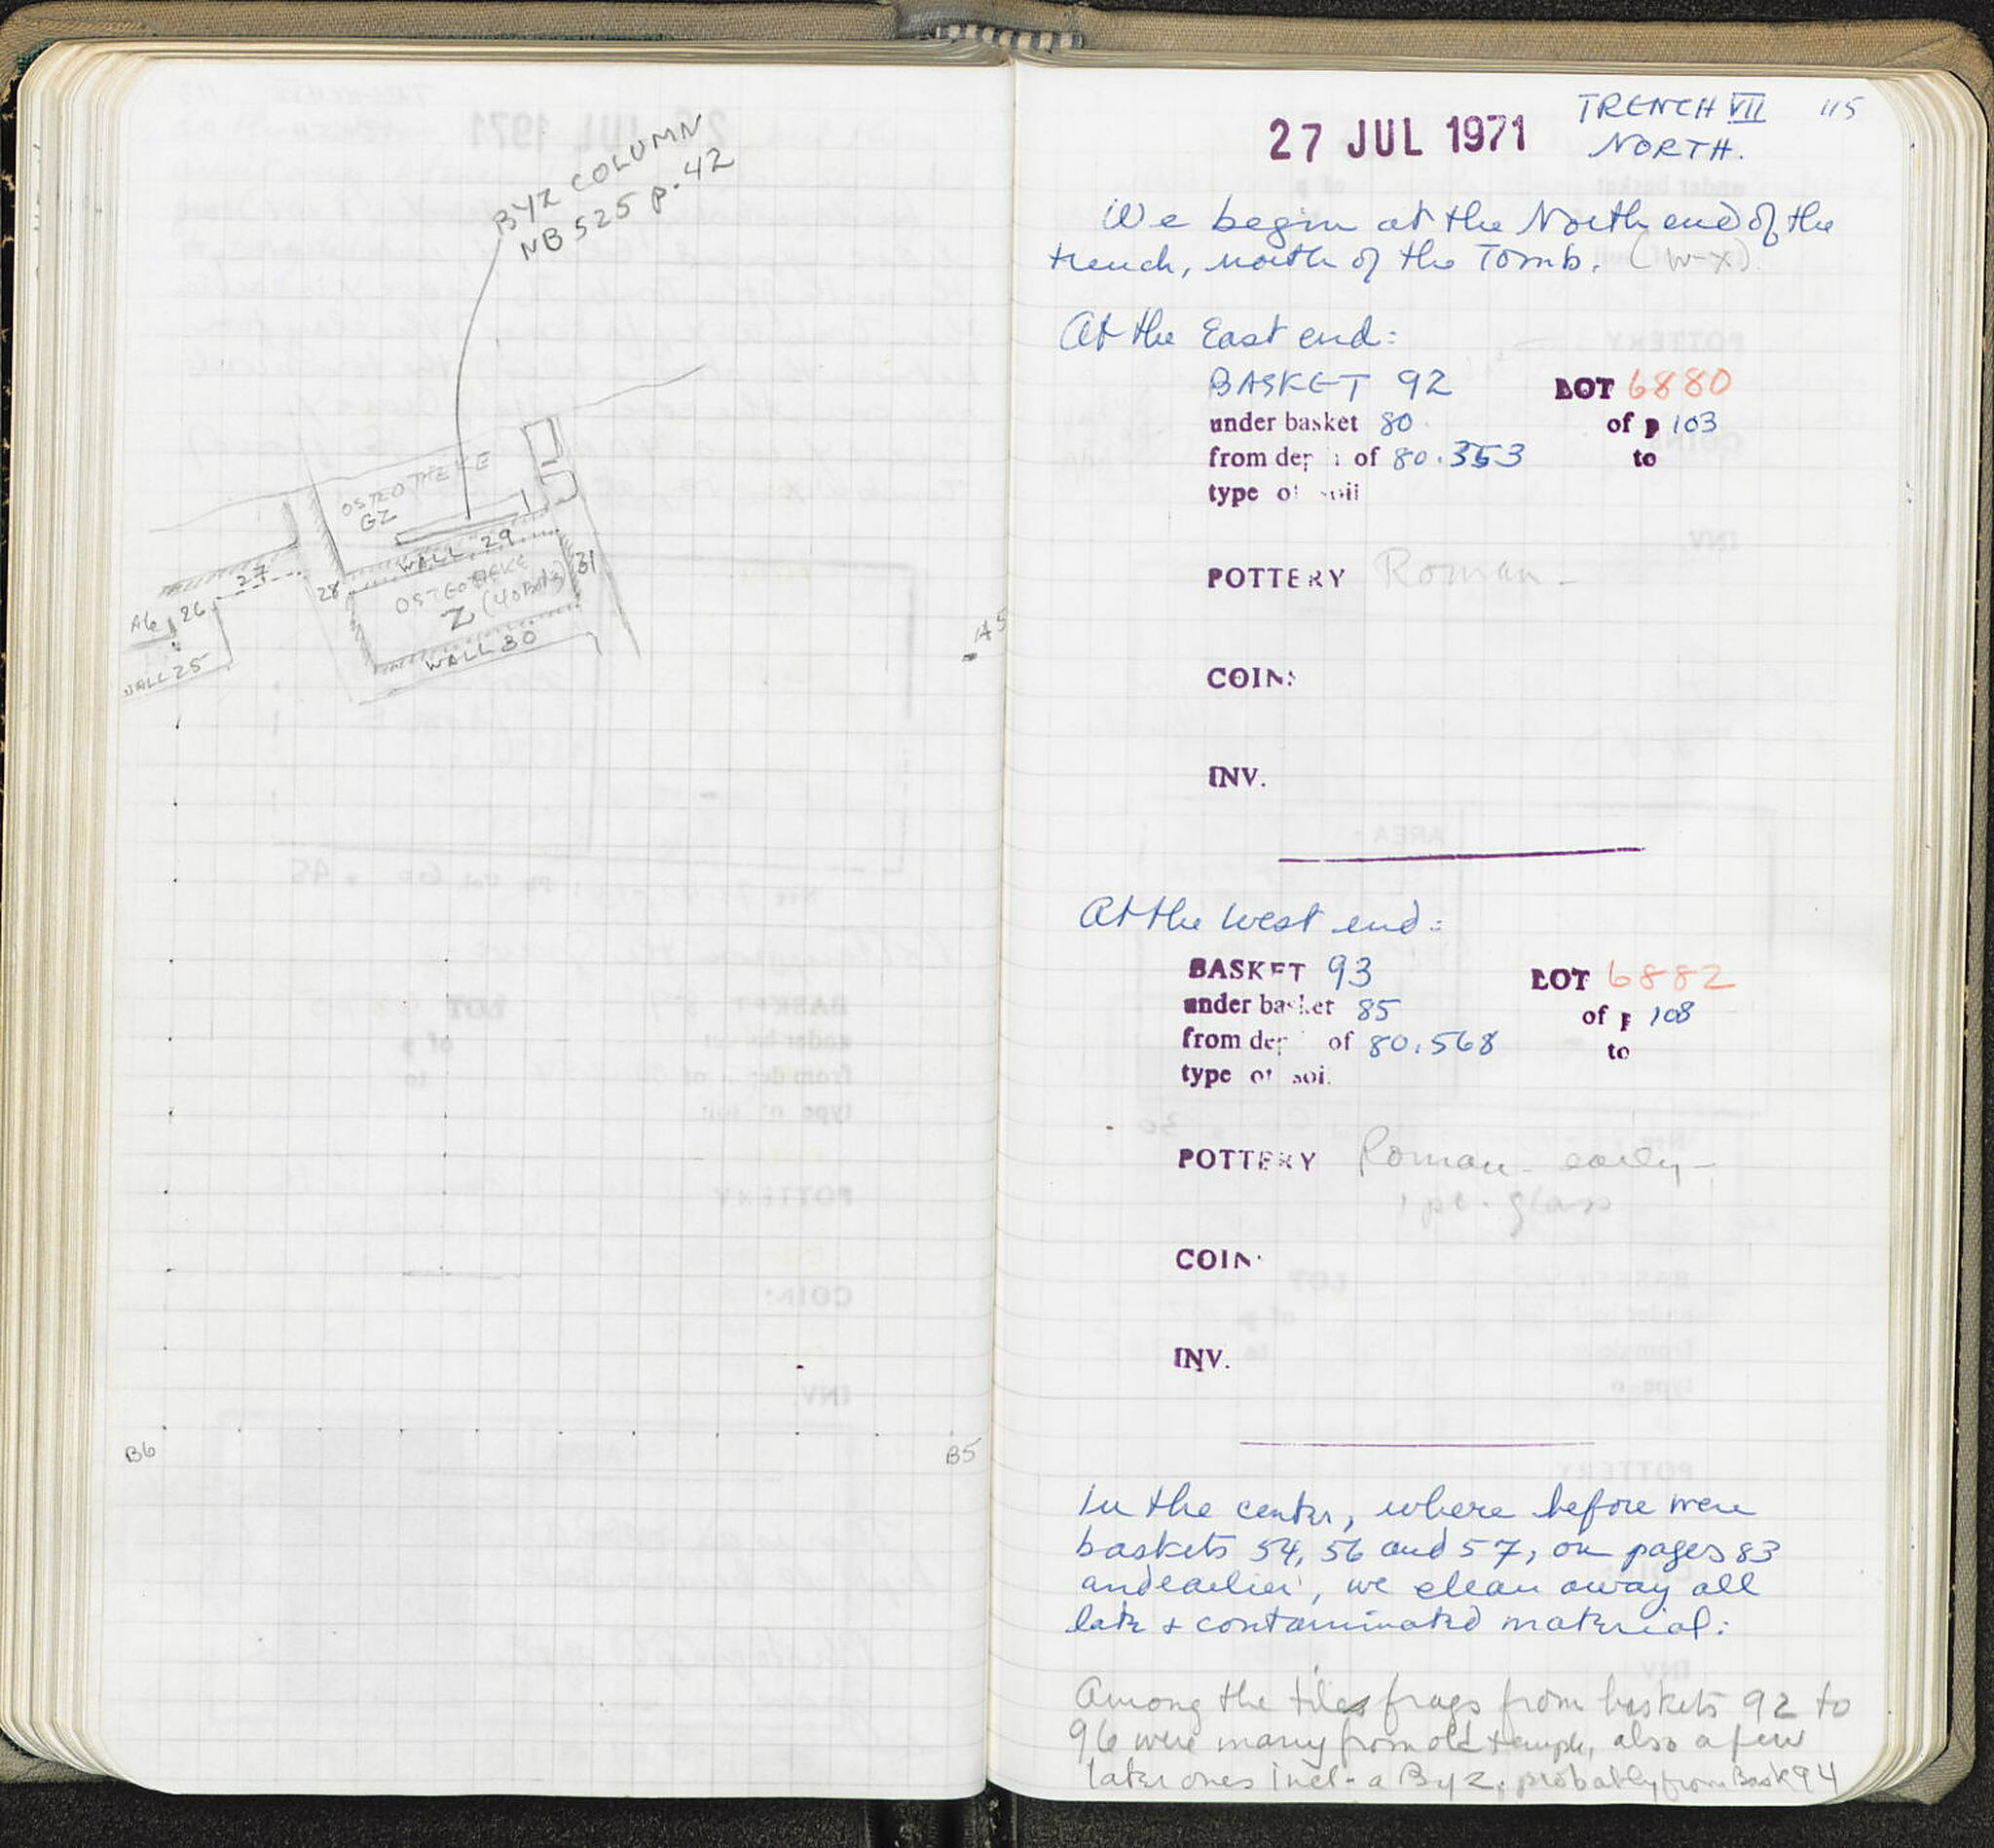 BYZ COLUMN
NB 525 p. 42
OSTEOTHEKE
GZ
WALL 29
OSTEOTHEKE
Z (40 Bods)
31
WALL 30
28
27
A6 26
WALL 25
A5
B6 B5
27 JUL 1971 TRENCH VII 115
NORTH.
We begin at the North end of the
trench, north of the Tomb. (W-X).
At the East end:
BASKET 92 LOT 6880
under basket 80 of p 103
from dep of 80.353 to
type of soil
POTTERY Roman -
COIN:
INV.
At the West end:
BASKET 93 LOT 6882
under basket 85 of p 108
from dep of 80.568 to
type of soil
POTTERY Roman - early -
1 pc. glass
COIN
INV.
In the center, where before were
baskets 54, 56 and 57, on pages 83
and earlier, we clean away all
late + contaminated material:
Among the tiles frags from baskets 92 to
96 were many from old temple, also a few
later ones incl. a Byz. probably from Bask 94